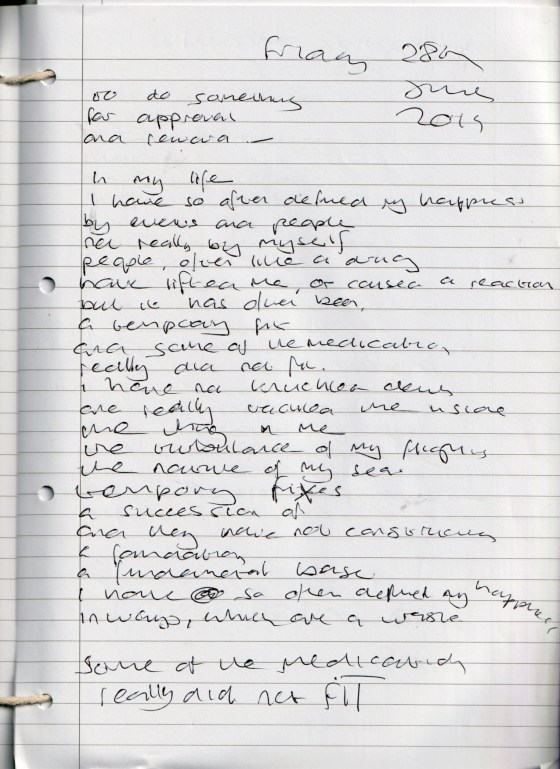 Friday 28th
June
2019
to do something
for approval
and reward —
In my life
I have so often defined my happiness
by events and people
not really by myself
people, often like a drug
have lifted me, or caused a reaction
but it has often been,
a temporary fix
and some of the medication
really did not fix.
I have not knuckled down
and really the inside
the in me
the turbulance of my
the nature of my sea
temporary fixes
a succession of
and they have not
a foundation
a fundamental base
I have so often defined my happiness
in ways, which are a waste
Some of the medication
really did not FIT